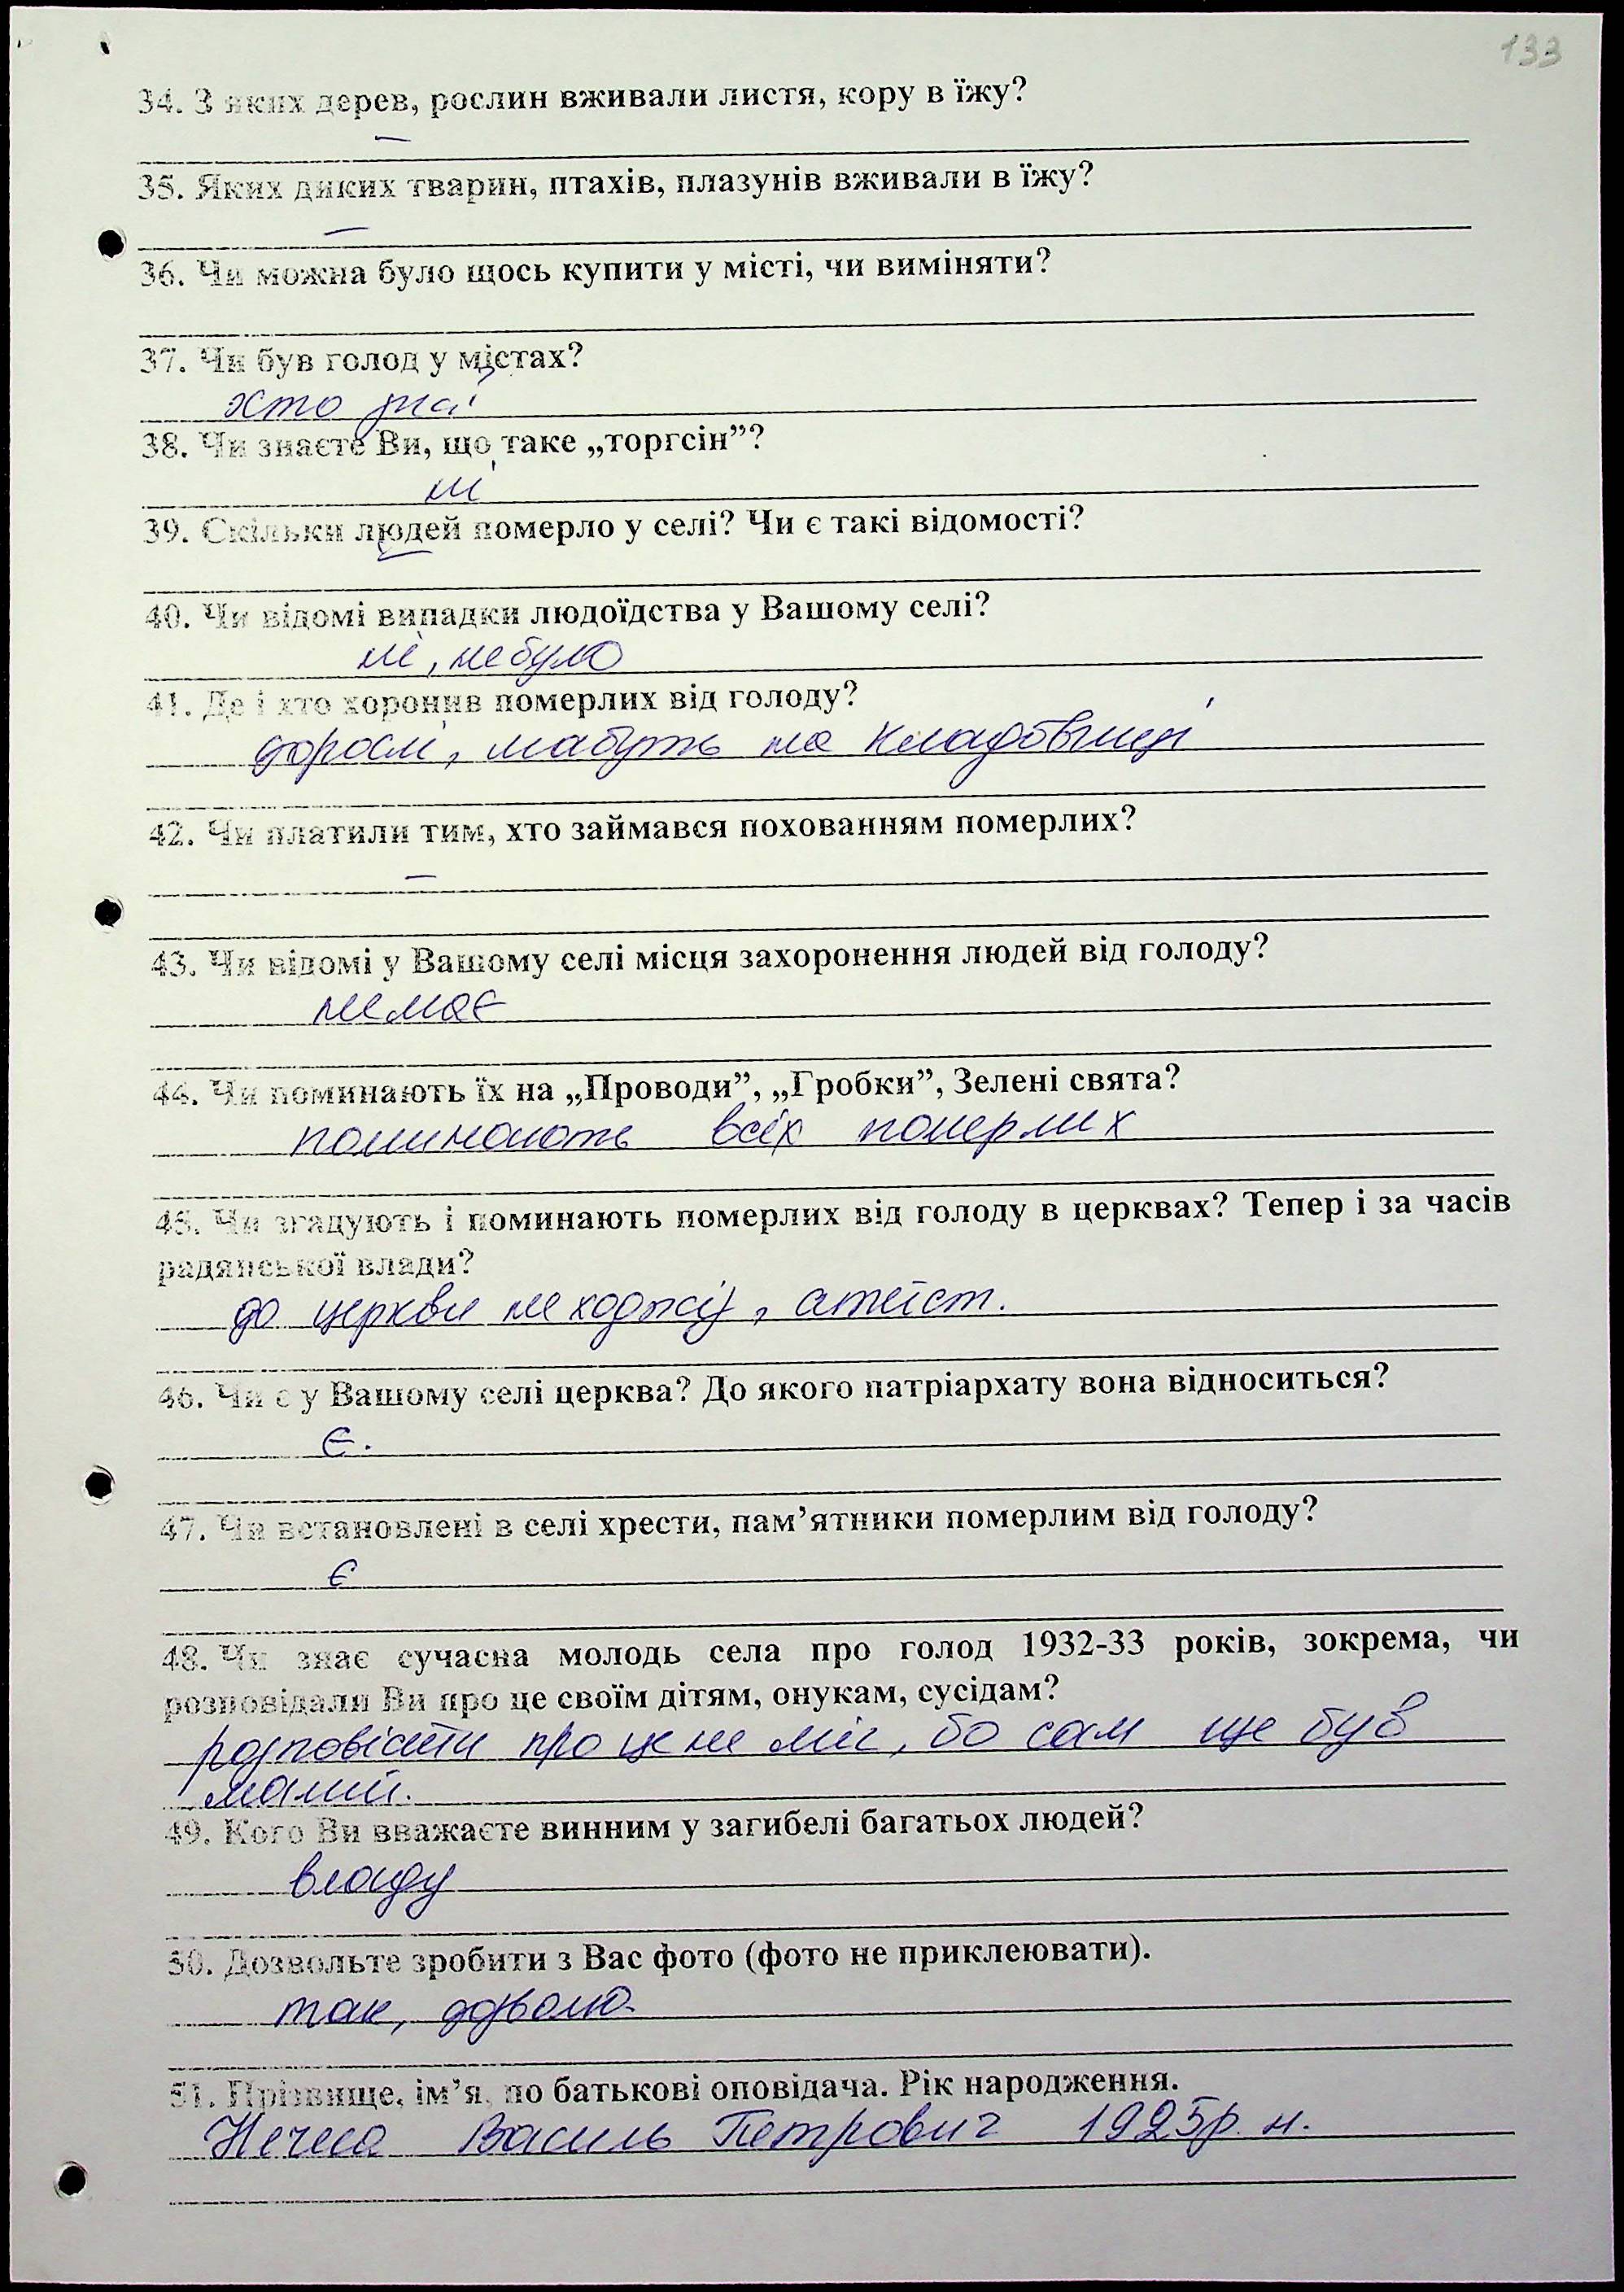 133
34. З яких дерев, рослин вживали листя, кору в їжу?
–
35. Яких диких тварин, птахів, плазунів вживали в їжу?
–
36. Чи можна було щось купити у місті, чи виміняти?
37. Чи був голод у містах?
хто зна
38. Чи знаєте Ви, що таке „торгсін”?
ні
39. Скільки людей померло у селі? Чи є такі відомості?
–
40. Чи відомі випадки людоїдства у Вашому селі?
ні, не було
41. Де і хто хоронив померлих від голоду?
дорослі, мабуть на кладовищі
42. Чи платили тим, хто займався похованням померлих?
–
43. Чи відомі у Вашому селі місця захоронення людей від голоду?
немає
44. Чи поминають їх на „Проводи”, „Гробки”, Зелені свята?
поминають всіх померлих
45. Чи згадують і поминають померлих від голоду в церквах? Тепер і за часів
радянської влади?
до церкви не ходжу, атеїст.
46. Чи є у Вашому селі церква? До якого патріархату вона відноситься?
Є.
47. Чи встановлені в селі хрести, пам’ятники померлим від голоду?
є
48. Чи знає сучасна молодь села про голод 1932-33 років, зокрема, чи
розповідали Ви про це своїм дітям, онукам, сусідам?
розповісти про це не міг, бо сам ще був
малий.
49. Кого Ви вважаєте винним у загибелі багатьох людей?
владу
50. Дозвольте зробити з Вас фото (фото не приклеювати).
так, дозволю
51. Прізвище, ім’я, по батькові оповідача. Рік народження.
Нечеса Василь Петрович 1925р. н.